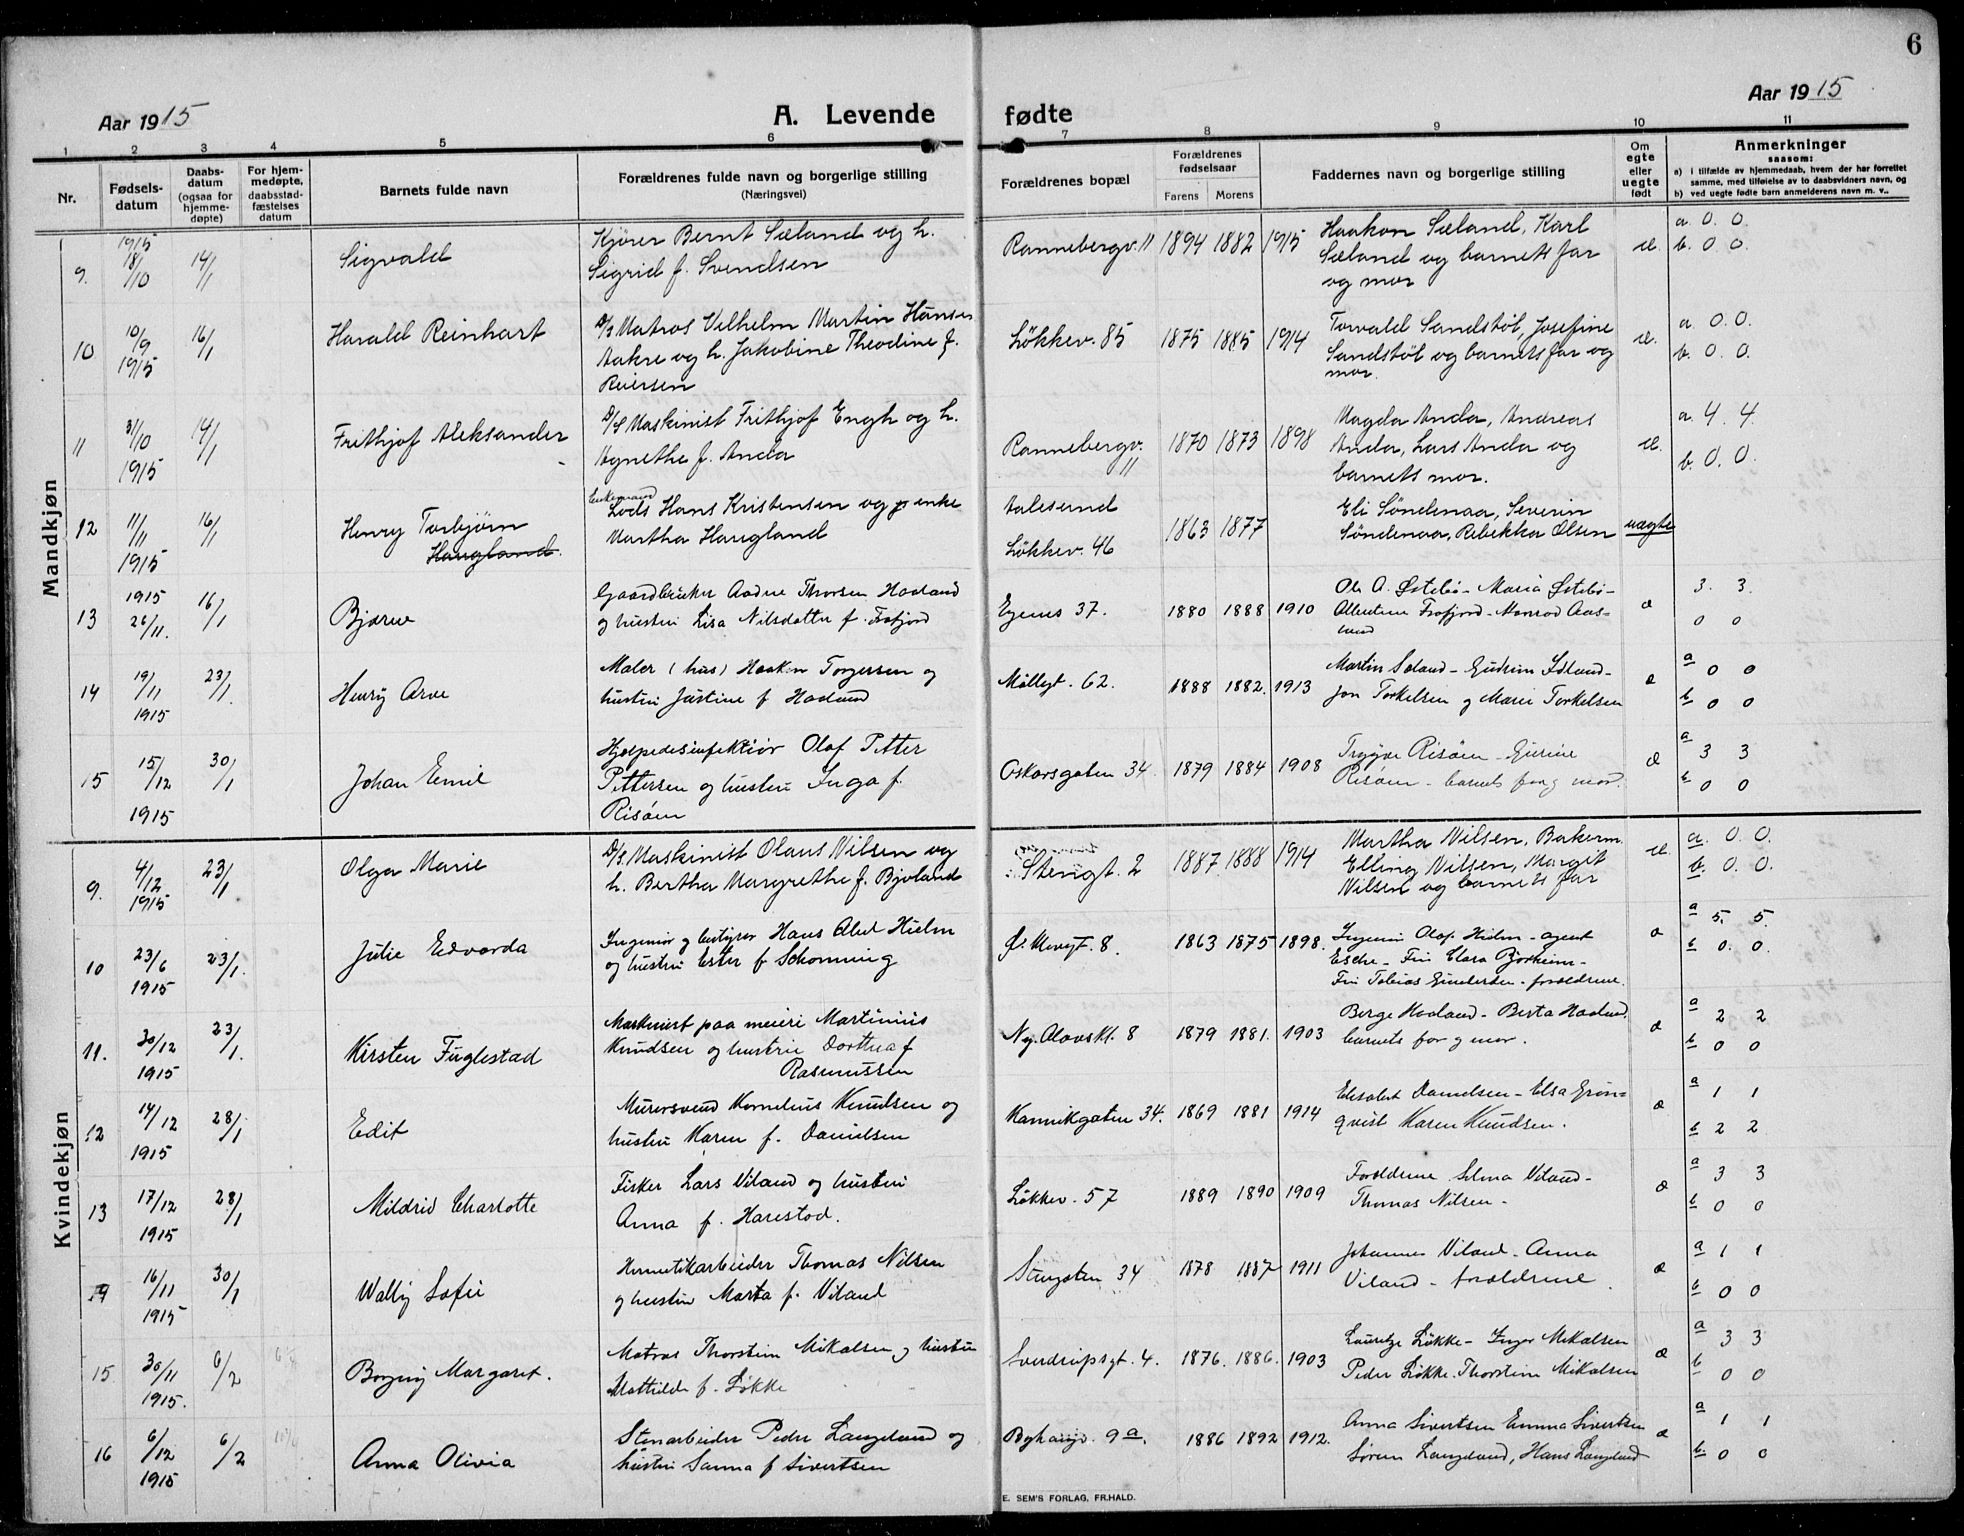 6
Aar 1915
A. Levende
fødte
Aar 1915
1 2 3 4 5 6 7 8 9 10 11
Nr.
Fødsels-
datum
Daabs-
datum
(ogsaa for
hjemme-
døpte)
For hjem-
medøpte,
daabsstad-
fæstelses
datum
Barnets fulde navn
Forældrenes fulde navn og borgerlige stilling
(Næringsvei)
Forældrenes bopæl
Forældrenes
fødselsaar
Farens Morens
Faddernes navn og borgerlige stilling
Om
egte
eller
uegte
født
Anmerkninger
saasom:
a) i tilfælde av hjemmedaab, hvem der har forrettet
samme, med tilføielse av to daabsvidners navn, og
b) ved uegte fødte barn anmelderens navn m. v..
Mandkjøn
9. 1915 18/10 14/1 Sigvald
Kjører Bernt Sæland og h.
Sigrid f. Svendsen
Rannebergv. 11 1894 1882 1915
Haakon Sæland, Karl
Sæland og barnets far
og mor
æ. a. 0. 0.
b. 0 0.
10 10/9 1915 16/1 Harald Reinhart
D/S Matros Vilhelm Martin Hansen
Aakre og h. Jakobine Theodine f.
Reiersen
Løkkev. 85 1875 1885 1914
Torvald Sandstøl, Josefine
Sandstøl og barnets far og
mor.
æ. a. 0. 0.
b. 0. 0.
11 31/10 1915 14/1 Frithjof Aleksander
D/S Maskinist Frithjof Engh og h.
Agnethe f. Anda
Rannebergv. 11 1870 1873 1898
Magda Anda, Andreas
Anda, Lars Anda og
barnets mor.
æ. a. 4. 4.
b. 0. 0.
12 11/11 1915 16/1 Henry Torbjørn
Haugland.
Enkemand
Lods Hans Kristensen og enke
Martha Haugland
Aalesund
Løkkev. 46 1863 1877
Eli Søndenaa, Severin
Søndenaa, Rebekka Olsen
uægte
13 1915 26/11. 16/1 Bjarne
Gaardbruker Aadne Thorsen Hadland
og hustru Lisa Nilsdatter f. Frafjord
Egenes 37. 1880 1888 1910
Ole A. Østebø - Maria Østebø -
Albertine Frafjord - Monrad Aas-
lund
æ 3. 3.
0 0
14 19/11 1915 23/1. Henry Arve
Maler (hus) Haakon Torgersen og
hustru Justine f Hadland
Møllegt. 62. 1888 1882. 1913
Martin Seland - Gudrun Idland -
Jon Torkelsen og Marie Torkelsen
æ a 0 0
b 0 0
15 15/12 1915 30/1 Johan Emil
Hjelpedesinfektiør Olaf Petter
Pettersen og hustru Inga f.
Risøen
Oskarsgaten 34. 1879 1884 1908
Trygve Risøen - Gurine
Risøen - barnets far og mor.
æ a 3 3
b 0 0
Kvindekjøn
9. 4/12 1915 23/1 Olga Marie
D/S Maskinist Olaus Nilsen og
h. Bertha Margrethe f. Bjoland
Stengt. 2 1887 1888 1914
Martha Nilsen, Bakerm.
Elling Nilsen, Margit
Nilsen og barnets far
æ. a. 0. 0.
b. 0. 0.
10 23/6 1915 23/1. Julie Edvarda
Ingeniør og bestyrer Hans Abel Hielm
og hustru Ester f Schønning
1863 1875 1898.
Ingeniør Olaf Hielm - agent
Esche - Fru Clara Bjorheim -
Fru Tobias Gundersen - forældrene.
æ a 5. 5.
b 0. 0.
11. 30/12 1915 23/1. Kirsten Fuglestad
Maskinist paa meieri Martinius
Knudsen og hustru Dorthea f
Rasmussen
Ny. Olavskl. 8 1879 1881. 1903
Berge Hadland - Berta Hadland.
barnets far og mor.
æ a 2 2
b 0 0
12 14/12 1915 28/1 Edit
Murersvend Kornelius Knudsen og
hustru Karen f. Danielsen
Kannikgaten 34. 1869 1881 1914
Elisabet Danielsen - Elsa Grøn-
qvist Karen Knudsen.
æ a 1 1
b 2 2
13 17/12 1915 28/1 Mildrid Charlotte
Fisker Lars Viland og hustru
Anna f. Harestad.
Løkkev. 57 1889 1890 1909
Forældrene Selma Viland -
Thomas Nilsen -
æ a 3 3
b 0 0
16/11 1915 30/1 Wally Sofie
Hermetikarbeider Thomas Nilsen
og hustru Marta f. Viland
Stengaten 34 1878 1887 1911
Johannes Viland - Anna
Viland - forældrene.
æ a 1 1
b 0 0
15 30/11 1915. 6/2 Borgny Margaret.
Matros Thorstein Mikalsen og hustru
Mathilde f. Løkke
Sverdrupsgt. 4. 1876. 1886. 1903
Lauritze Løkke - Inger Mikalsen
Peder Løkke. Thorstein Mikalsen
æ a 3 3
b 0 0
16 6/12 1915 6/2 Anna Olivia
Stenarbeider Peder Langeland og
hustru Sanna f Sivertsen
Byhaugv. 9a. 1886 1892 1912.
Anna Sivertsen Emma Sivertsen
Søren Langeland, Hans Langeland
æ a 1 1
b. 0 0
E. SEM'S FORLAG, FR.HALD.